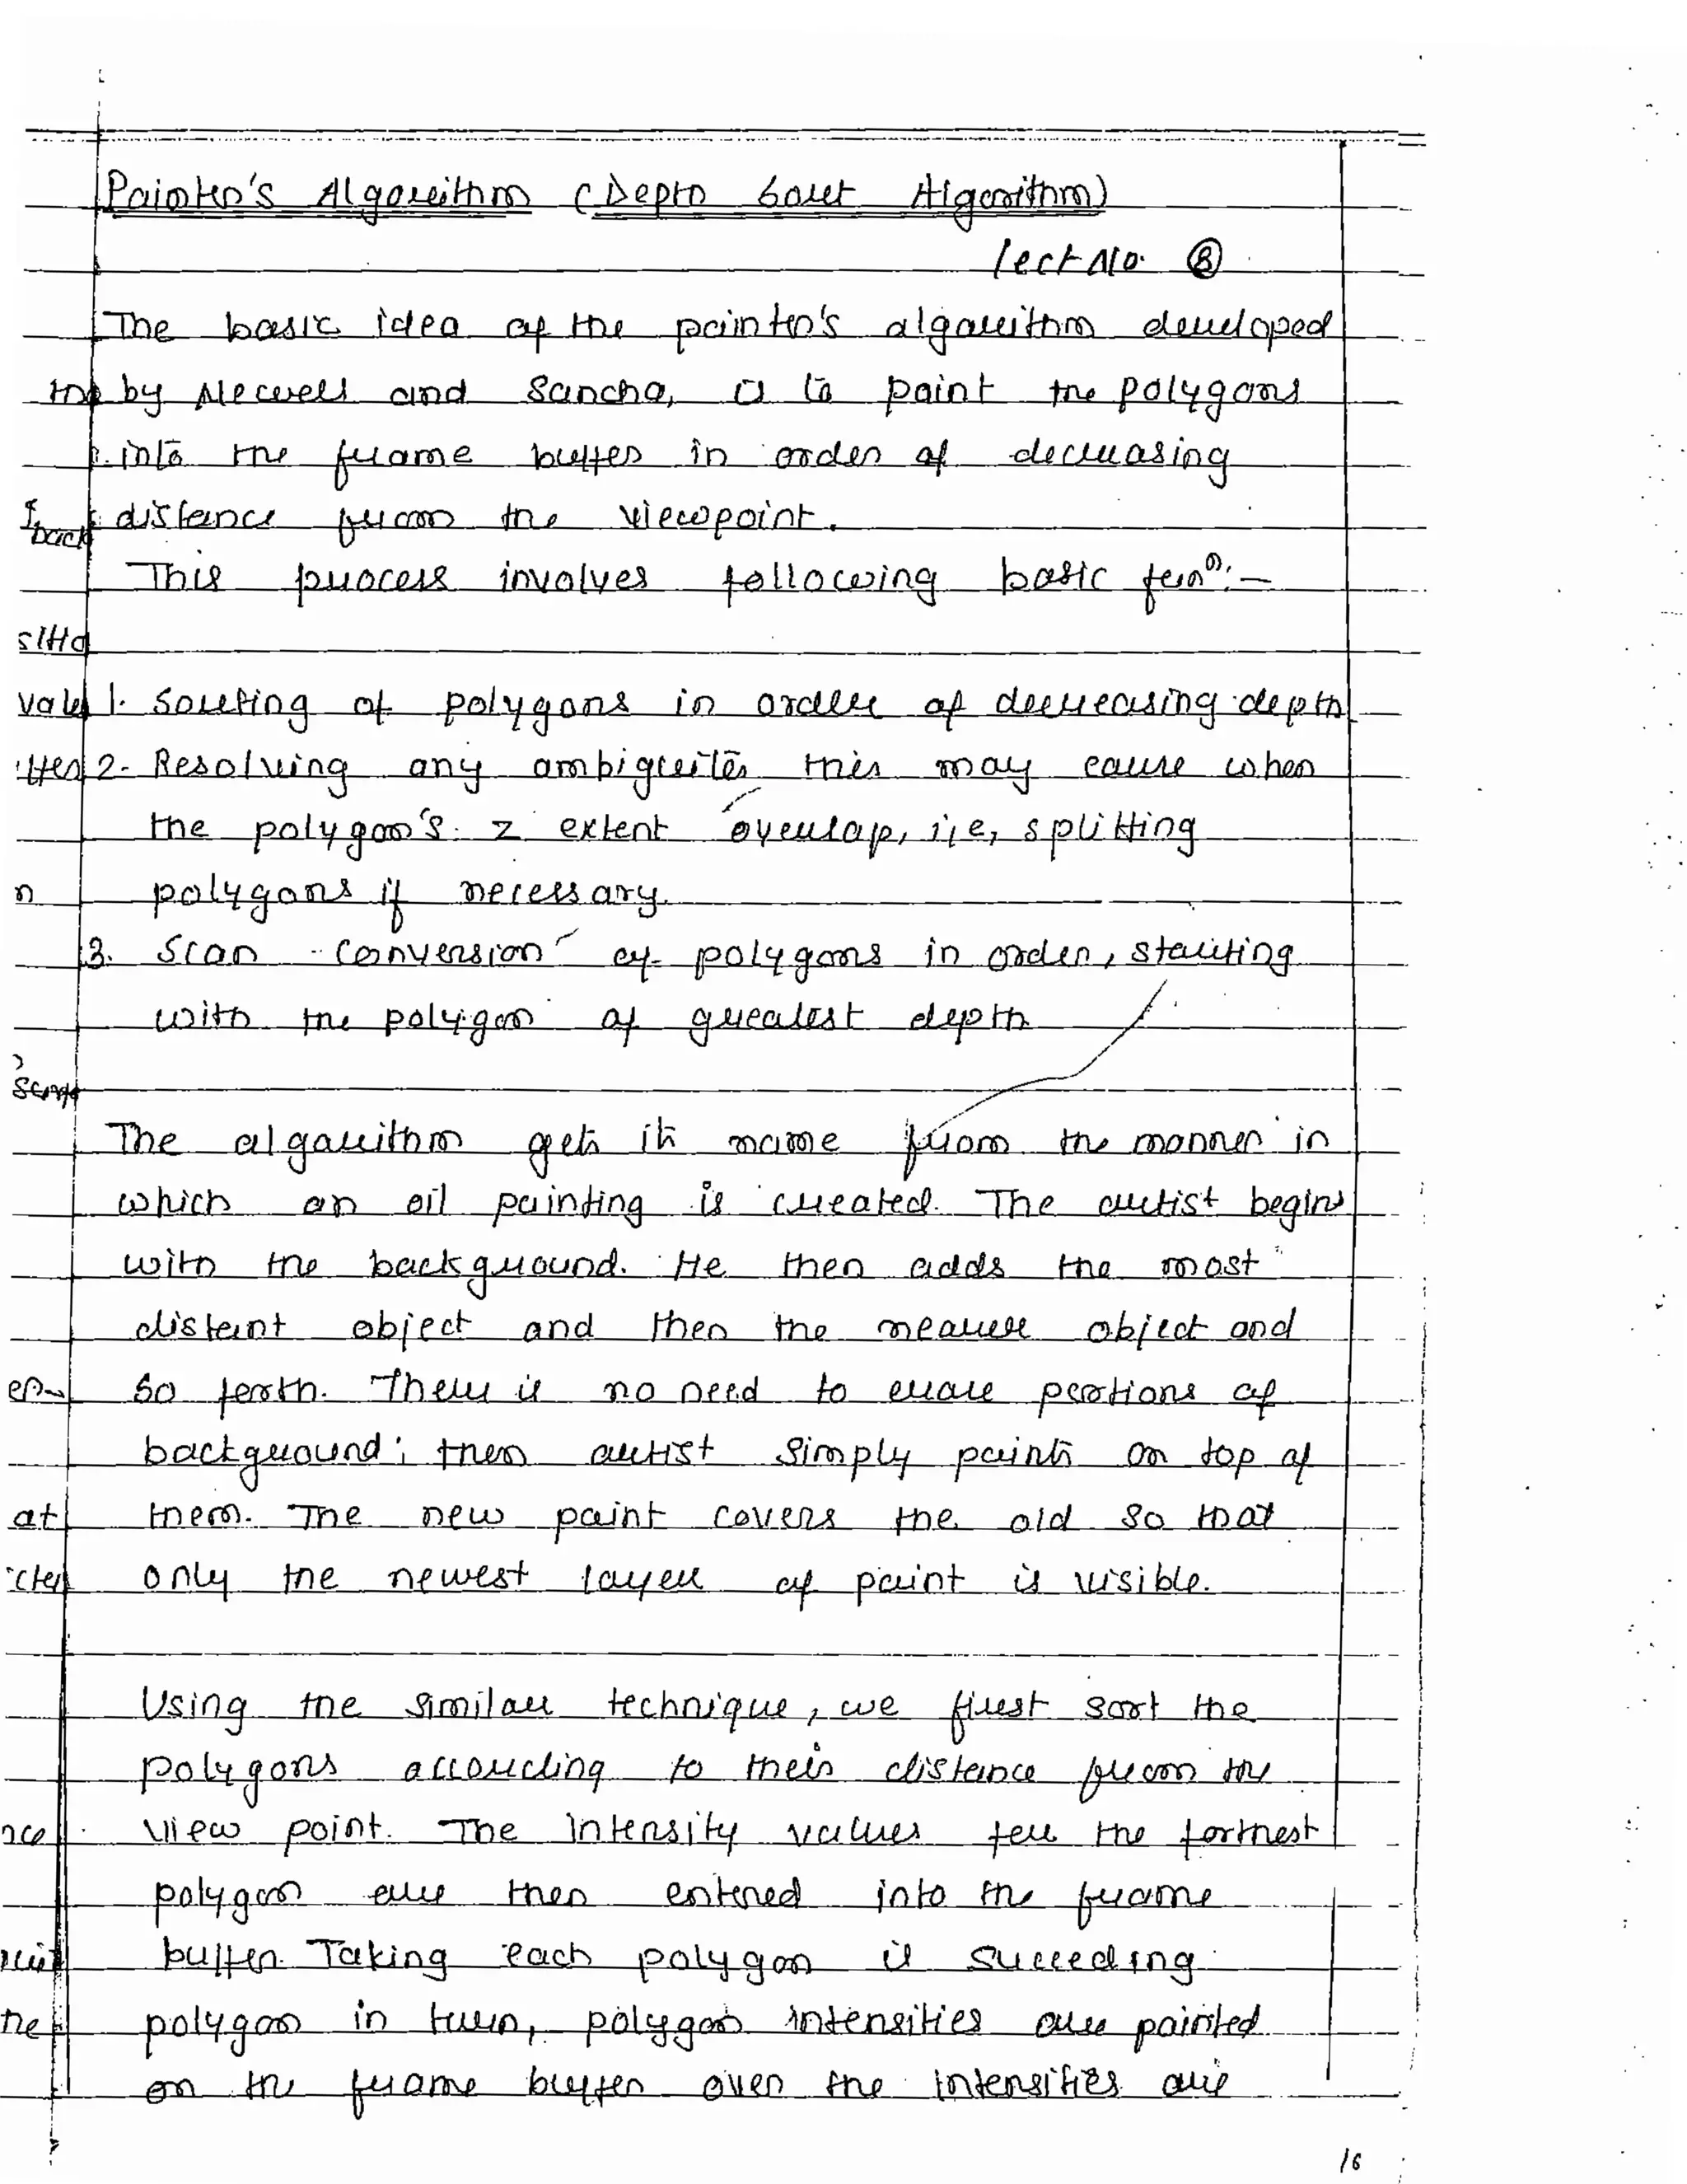 Painter's Algorithm (Depth Sort Algorithm)
Lect No. 8
The basic idea of the painter's algorithm developed
by Newell and Sancha, is to paint the polygons
into the frame buffer in order of decreasing
distance from the viewpoint.
This process involves following basic funⁿ:-
1. Sorting of polygons in order of decreasing depth
2. Resolving any ambiguites this may cause when
the polygon's z extent overlap, i,e, splitting
polygons if necessary.
3. Scan conversion of polygons in order, starting
with the polygon of greatest depth
The algorithm gets its name from the manner in
which an oil painting is created. The artist begins
with the background. He then adds the most
distant object and then the nearer object and
so forth. There is no need to erase portions of
background; then artist simply paints on top of
them. The new paint covers the old so that
only the newest layer of paint is visible.
Using the similar technique, we first sort the
polygons according to their distance from the
view point. The intensity values for the forthest
polygon are then entered into the frame
buffer. Taking each polygon is succeeding
polygon in turn, polygon intensities are painted
on the frame buffer over the intensities are
16